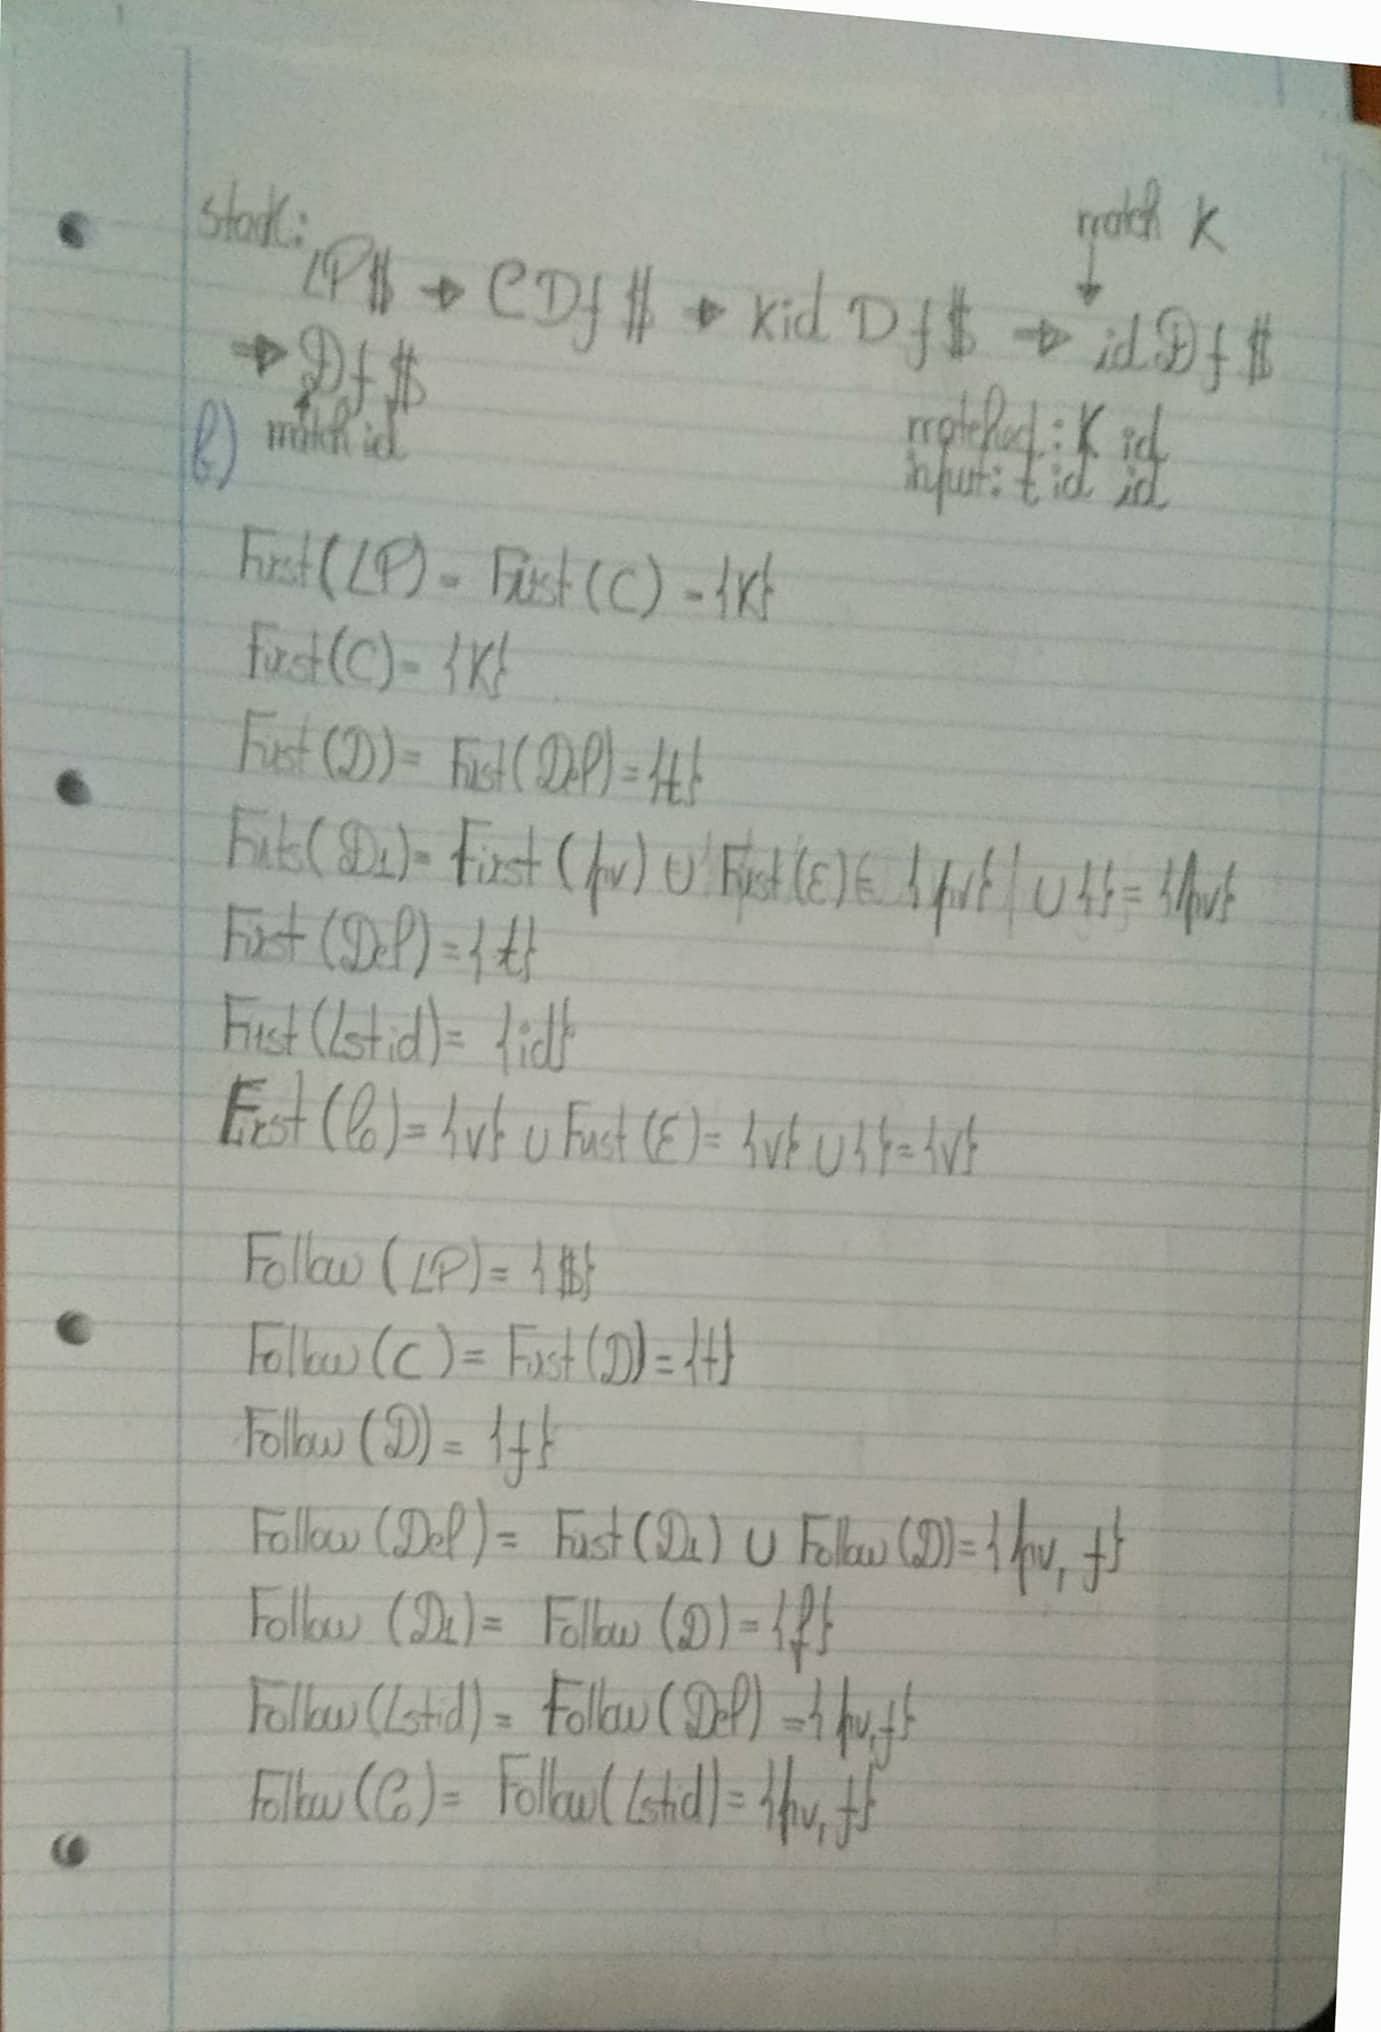 stack:
match K
LP$ → CDf$ → kid Df$ → idDf$
→ Df$
match id
matched: K id
input: t id id
b)
First(LP) = First(C) = {K}
First(C) = {K}
First(D) = First(Dcl) = {t}
Firts(D1) = First(pv) ∪ First(ε) = {pv} ∪ {} = {pv}
First(Dcl) = {t}
First(Lstid) = {id}
First(Co) = {v} ∪ First(ε) = {v} ∪ {} = {v}
Follow(LP) = {$}
Follow(C) = First(D) = {t}
Follow(D) = {f}
Follow(Dcl) = First(D1) ∪ Follow(D) = {pv, f}
Follow(D1) = Follow(D) = {f}
Follow(Lstid) = Follow(Dcl) = {pv, f}
Follow(Co) = Follow(Lstid) = {pv, f}